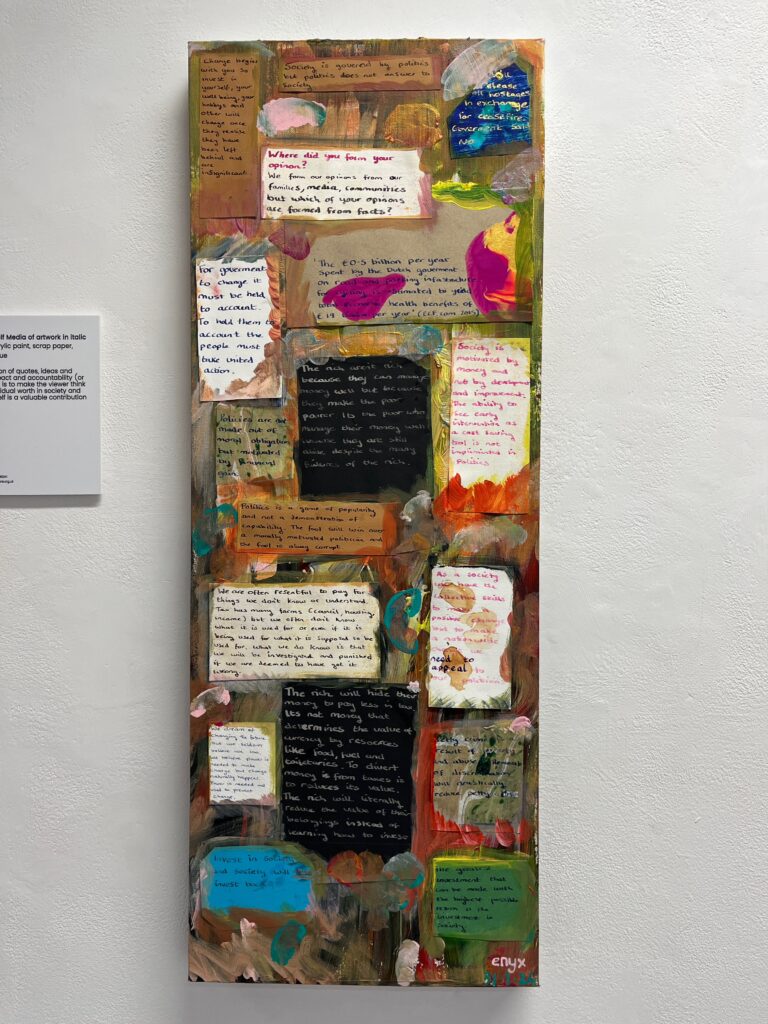 Change begins
with you so
invest in
yourself, your
well being, your
hobbys and
other will
change once
they realise
they have
been left
behind and
are
insignificant.
Society is governed by politics
but politics does not answer to
society
release
all hostages
in exchange
for ceasefire.
Goverment Said
No
Where did you form your
opinon?
We form our opinions from our
families, media, communities
but which of your opinions
are formed from facts?
'The €0.5 billion per year
spent by the Dutch goverment
on road and parking infastructure
for cycling is estimated to yield
health benefits of
€19 billion per year' (ECF.com 2018)
For goverment
to change it
must be held
to account.
To hold them to
account the
people must
take united
action.
lf Media of artwork in italic
ylic paint, scrap paper,
ue
on of quotes, ideas and
pact and accountability (or
is to make the viewer think
vidual worth in society and
elf is a valuable contribution
The rich aren't rich
because they can manage
money well but because
they make the poor
poorer. Its the poor who
manage their money well
because they are still
alive despite the many
failures of the rich.
Society is
motivated by
money and
not by development
and improvement.
The ability to
see early
intervention as
a cost saving
tool is not
implimented in
Politics
Policies are not
made out of
moral obligation
but motivated
by financial
gain.
Politics is a game of popularity
and not a demonstration of
capability. The fool will win over
a morally motivated politician and
the fool is always corrupt
We are often resentful to pay for
things we don't know or understand.
Tax has many forms (council, housing,
income) but we often don't know
what it is used for or even if it is
being used for what it is supposed to be
used for. What we do know is that
we will be investigated and punished
if we are deemed to have got it
wrong.
As a society
we have the
collective skills
to make
positive change
but to make
it nationwide
we
need to
appeal to
our politicians
The rich will hide their
money to pay less in tax.
Its not money that
determines the value of
currency by resources
like food, fuel and
toiletries. To divert
money is from taxes is
to reduces its value.
The rich will literally
reduce the value of their
belongings instead of
learning how to invest
We dream of
changing the future
but we seldom
believe we can.
We believe power is
needed to make
change but change
naturally happens.
Power is needed
used to prevent
change.
Petty crime is a
result of poverty
and abuse. Removal
of discrimination
will drastically
reduce petty crime
Invest in Society
and society will
invest back
The greatest
investment that
can be made with
the highest possible
return is the
investment in
Society.
enyx